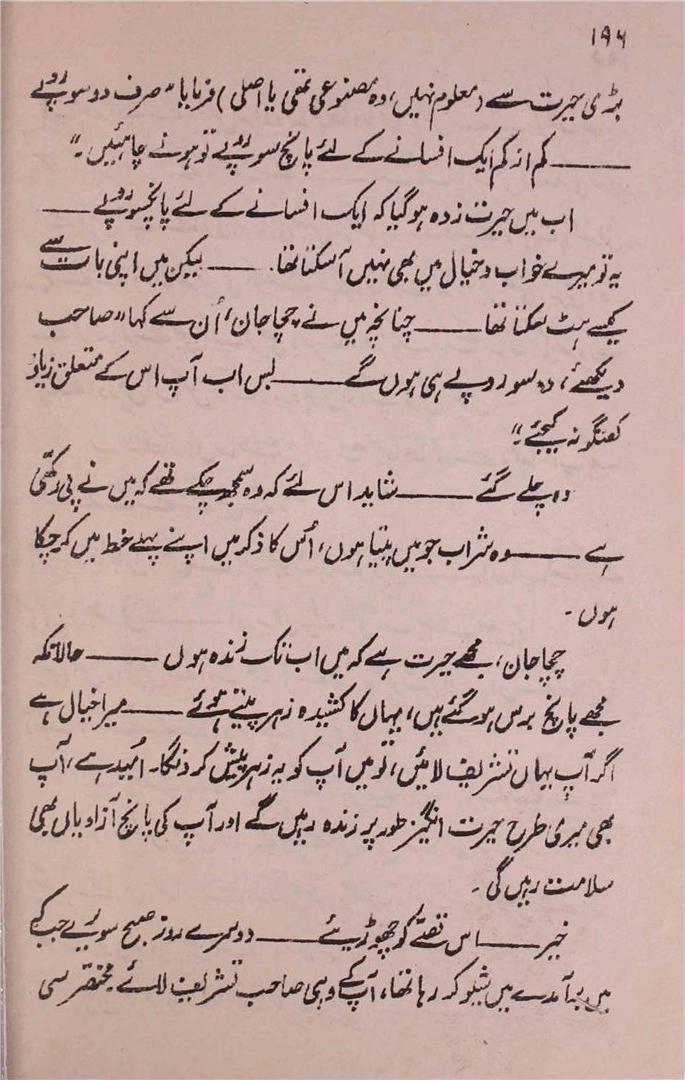 ۱۹۶
بڑی حیرت سے (معلوم نہیں، وہ مصنوعی تھی یا اصلی) فرمایا "صرف دو سو روپے
——کم از کم ایک افسانے کے لئے پانچ سو روپے تو ہونے چاہئیں۔"
اب میں حیرت زدہ ہو گیا کہ ایک افسانے کے لئے پانچسو روپے——
یہ تو میرے خواب و خیال میں بھی نہیں آ سکتا تھا۔——لیکن میں اپنی بات سے
کیسے ہٹ سکتا تھا——چنانچہ میں نے چچا جان، اُن سے کہا "صاحب
دیکھئے، دو سو روپے ہی ہوں گے——بس اب آپ اس کے متعلق زیادہ
گفتگو نہ کیجئے۔"
وہ چلے گئے——شاید اس لئے کہ وہ سمجھ چکے تھے کہ میں نے پی رکھی
ہے——وہ شراب جو میں پیتا ہوں، اُس کا ذکر میں اپنے پہلے خط میں کر چکا
ہوں۔
چچا جان، مجھے حیرت ہے کہ میں اب تک زندہ ہوں——حالانکہ
مجھے پانچ برس ہو گئے ہیں، یہاں کا کشیدہ زہر پیتے ہوئے——میرا خیال ہے
اگر آپ یہاں تشریف لائیں، تو میں آپ کو یہ زہر پیش کر دنگا۔ اُمید ہے، آپ
بھی میری طرح حیرت انگیز طور پر زندہ رہیں گے اور آپ کی پانچ آزادیاں بھی
سلامت رہیں گی۔
خیر——اس قصّے کو چھوڑیئے——دوسرے روز صبح سویرے جب کہ
میں برآمدے میں شیو کر رہا تھا، آپ کے وہی صاحب تشریف لائے مختصر سی